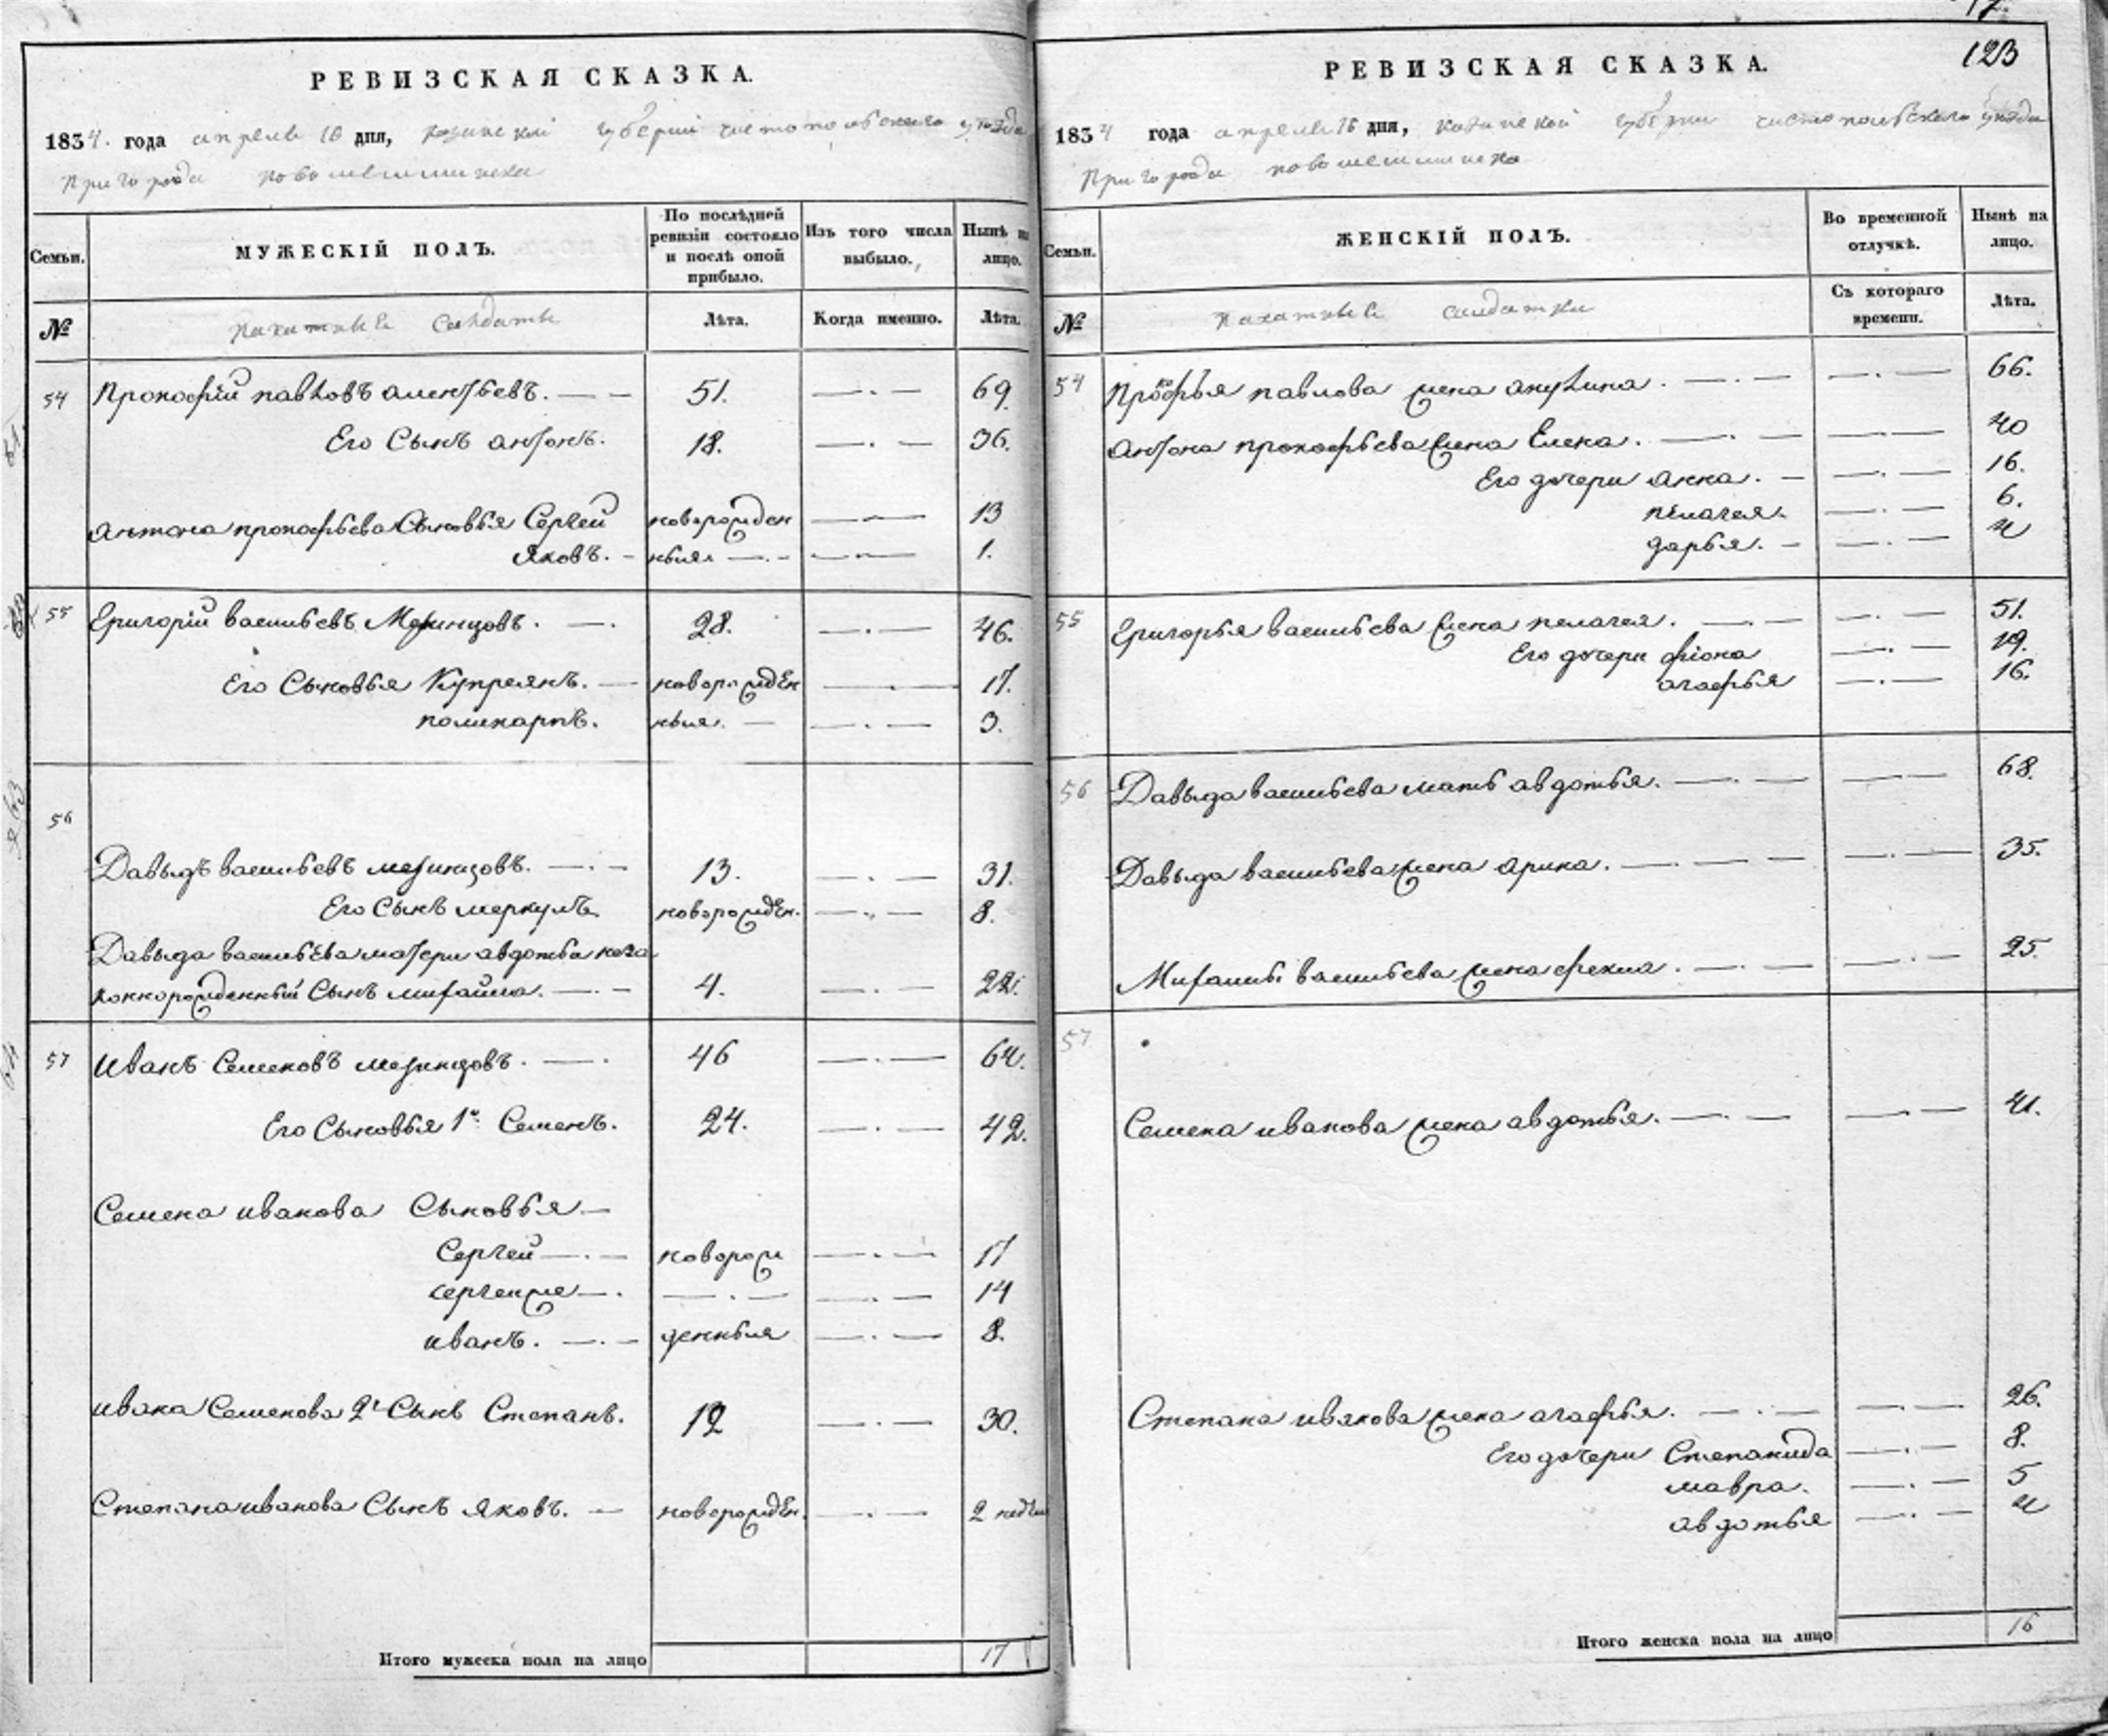 РЕВИЗСКАЯ СКАЗКА.
1834. года апреля дня, казанской губерніи чистопольскаго уѣзда
Пригорода новошешминска
Семьи.
МУЖЕСКІЙ ПОЛЪ.
По послѣдней ревизіи состояло и послѣ оной прибыло.
Изъ того числа выбыло.
Нынѣ на лицо.
№
пахатные солдаты
Лѣта.
Когда именно.
Лѣта.
54 Прокофій павловъ алентьевъ. 51. 69.
Его Сынъ антонъ. 18. 36.
антона прокофьева Сыновья Сергей новорожден 13
Яковъ. ныя. 1.
55 Григорій васильевъ Мезинцовъ. 28. 46.
Его Сыновья Купреянъ. новорожден 17.
поликарпъ. ныя. 3.
56
Давыдъ васильевъ мезинцовъ. 13. 31.
Его Сынъ меркулъ. новорожден. 8.
Давыда васильева матери авдотьи неза
коннорожденный Сынъ михайла. 4. 22.
57 Иванъ Семеновъ мезинцовъ. 46 64.
Его Сыновья 1й Семенъ. 24. 42.
Семена иванова Сыновья
Сергей новорож 17
сергейже 14
иванъ. денныя 8.
ивана Семенова 2й Сынъ Степанъ. 12 30.
Степана иванова Сынъ Яковъ. новорожден. 2 недѣли
Итого мужеска пола на лицо 17
123
РЕВИЗСКАЯ СКАЗКА.
1834 года апреля дня, казанской губерніи чистопольскаго уѣзда
Пригорода новошешминска
Семьи.
ЖЕНСКІЙ ПОЛЪ.
Во временной отлучкѣ.
Нынѣ на лицо.
№
пахатные солдатки
Съ котораго времени.
Лѣта.
54 Прокофья павлова жена акулина. 66.
Антона прокофьева жена Елена. 40
Его дочери анна. 16.
пелагея. 6.
дарья. 4
55 Григорья васильева жена пелагея. 51.
Его дочери фіона 19.
агафья 16.
56 Давыда васильева мать авдотья. 68.
Давыда васильева жена арина. 35.
Михайлы васильева жена фекла. 25.
57
Семена иванова жена авдотья. 41.
Степана иванова жена агафья. 26.
Его дочери Степанида 8.
мавра. 5
авдотья 4
Итого женска пола на лицо 16